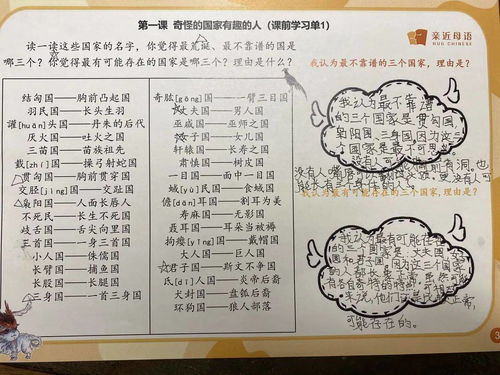 第一课 奇怪的国家有趣的人（课前学习单1）
亲近母语
HUG CHINESE
读一读这些国家的名字，你觉得最荒诞、最不靠谱的国是
哪三个？你觉得最有可能存在的国家是哪三个？理由是什么？
结匈国——胸前凸起国
羽民国——长头生羽
讙[huān]头国——丹朱的后代
厌火国——吐火之国
三苗国——苗族祖先
载[zhí]国——操弓射蛇国
贯匈国——胸前贯穿国
交胫[jìng]国——交趾国
枭阳国——人面长唇人
不死民——长生不死国
歧舌国——舌尖向里国
三首国——一身三首国
小人国——侏儒国
长臂国——捕鱼国
长股国——长腿国
三身国——一首三身国
奇肱[gōng]国——一臂三目国
丈夫国——男人国
巫咸国——巫师之国
女子国——女儿国
轩辕国——长寿之国
肃慎国——树皮国
一目国——面中一目国
蜮[yù]民国——食蜮国
儋[dān]耳国——割耳为美
寿麻国——无影国
聂耳国——耳朵当被褥
拘瘿[yǐng]国——戴帽国
大人国——巨人国
君子国——斯文不争国
氐[dī]人国——炎帝后裔
犬封国——盘瓠后裔
环狗国——狼人部落
我认为最不靠谱的三个国家，理由是？
我认为最不靠谱
的三个国家是贯匈国、
枭阳国、三身国，因为这三
个国家最不可思议，
我认为最有可能存在的三个国家，理由是？
我认为最有可能存在
的三个国家是丈夫国、女子
国和君子国，因为这三个国家
可能存在的。
3